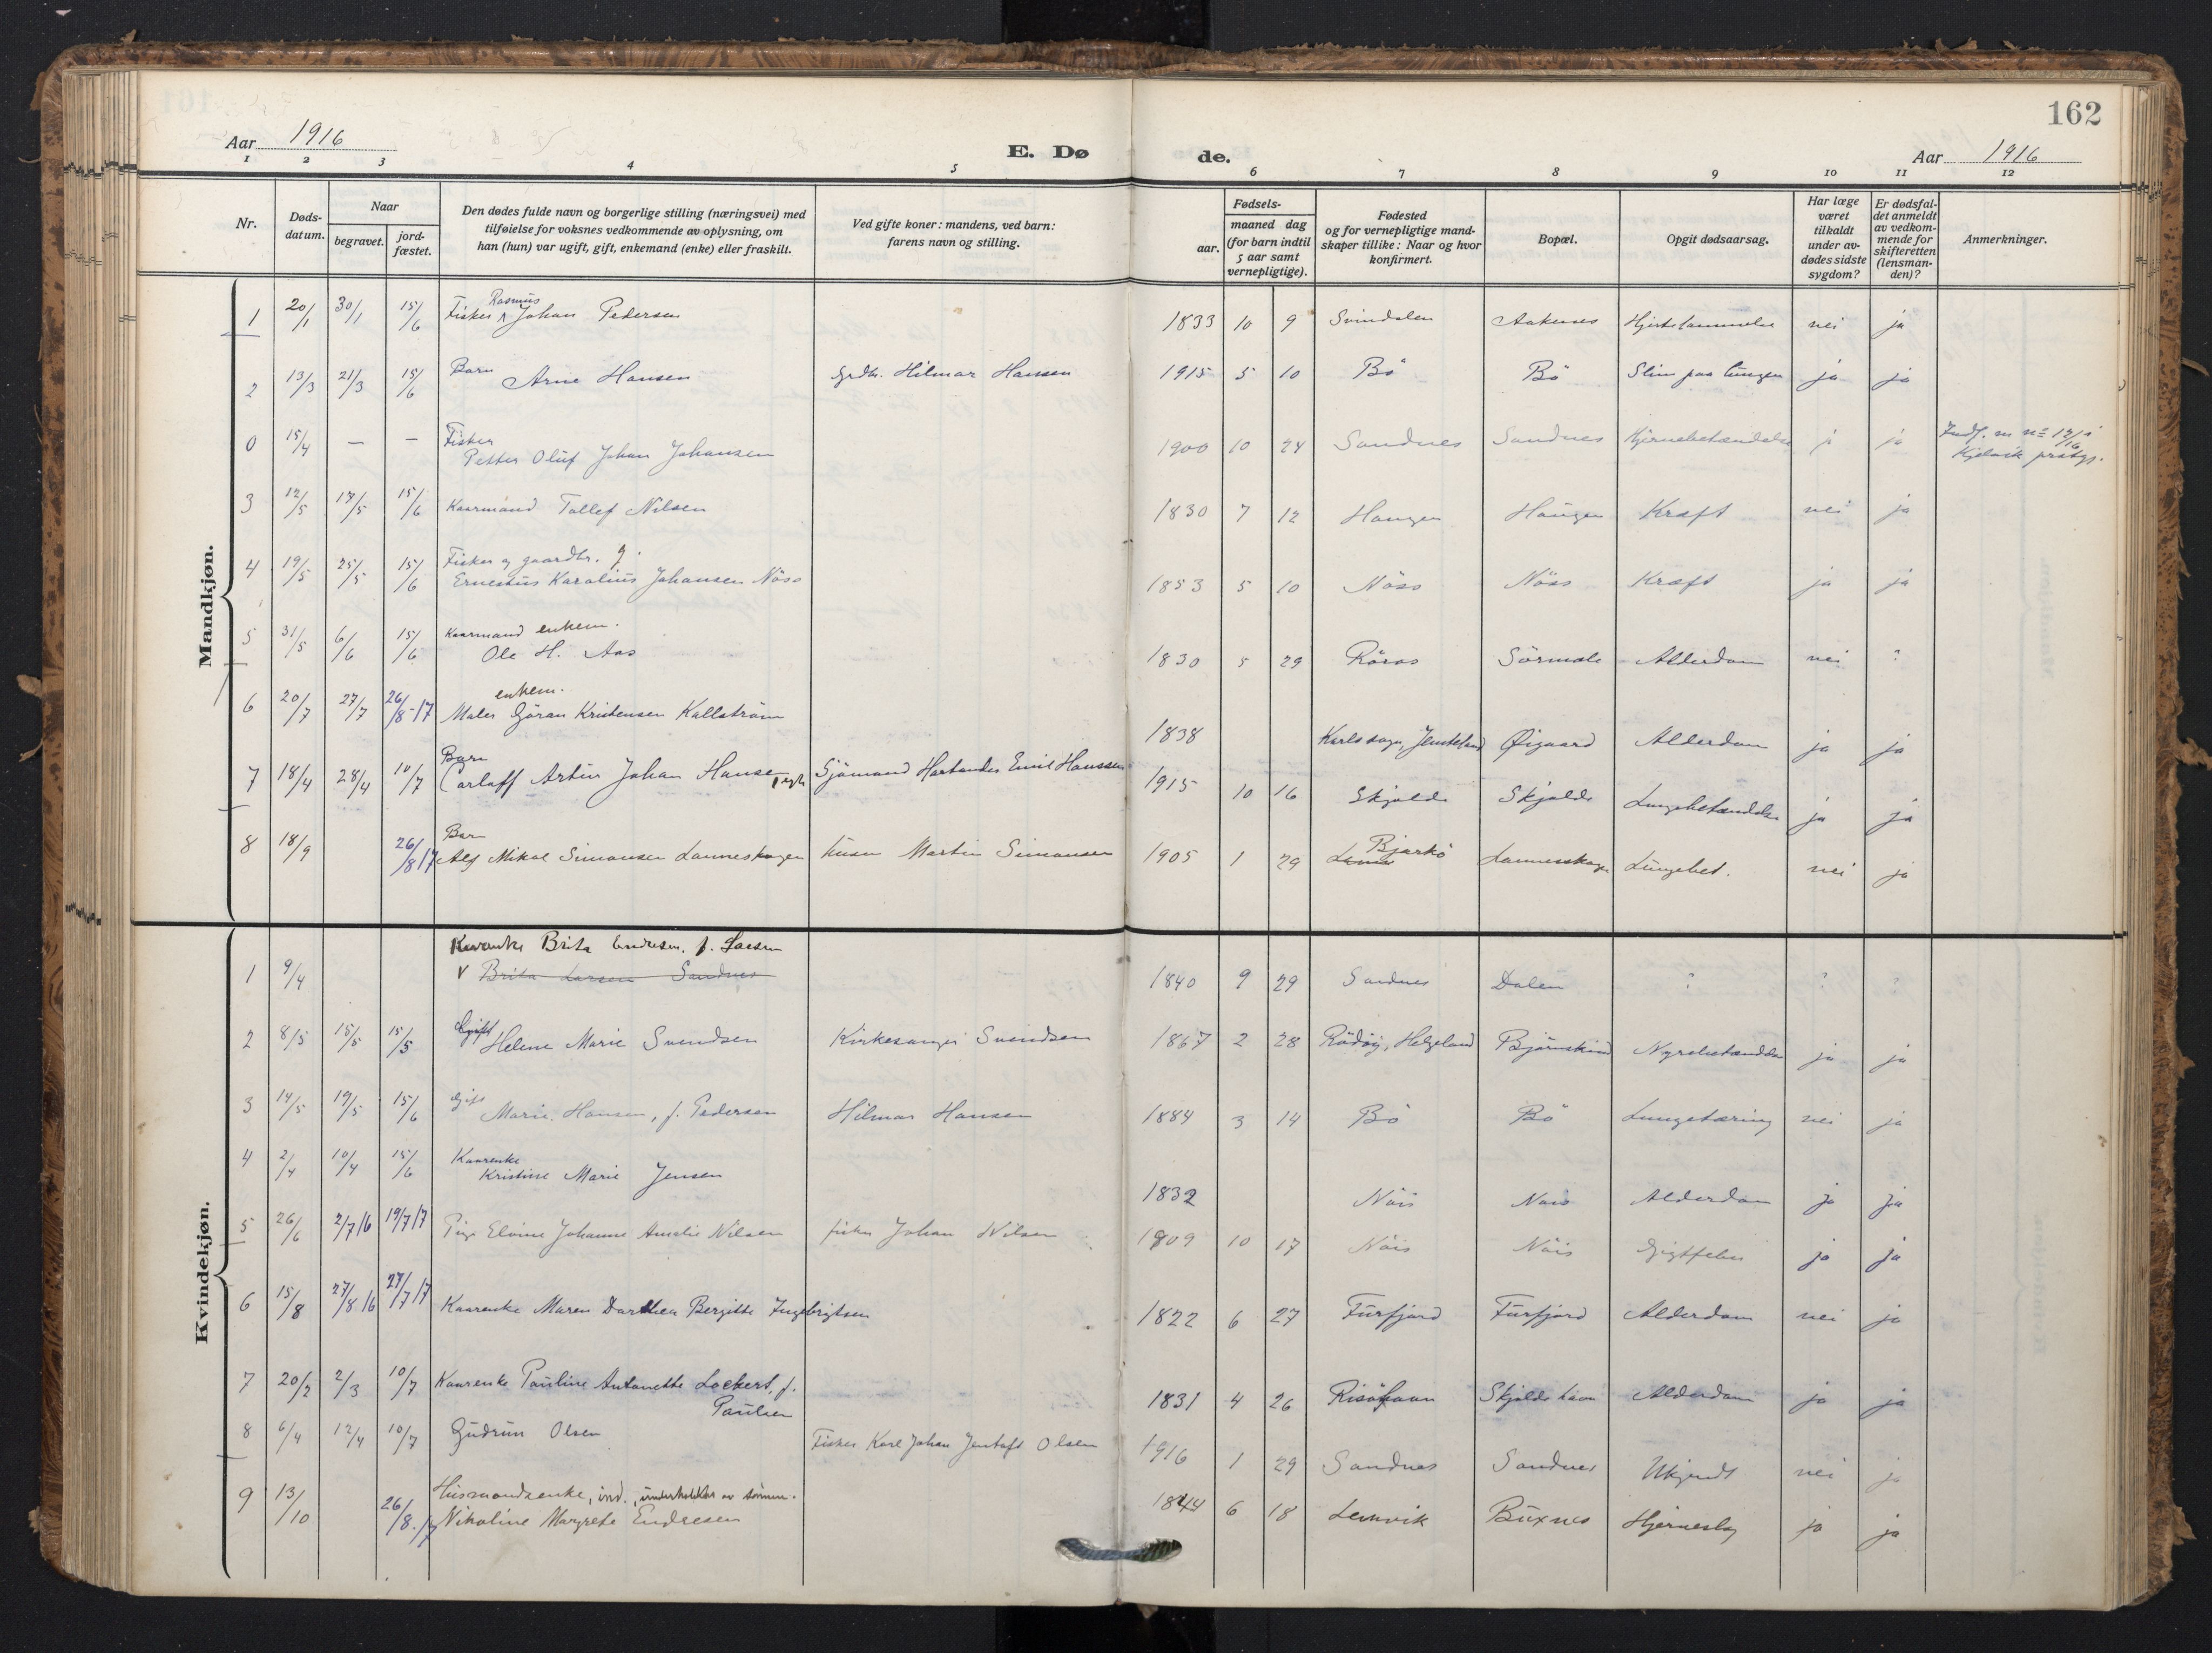 162
Aar 1916
E. Dø
de.
Aar 1916
1 2 3 4 5 6 7 8 9 10 11 12
Nr.
Døds-
datum.
Naar
begravet.
jord-
fæstet.
Den dødes fulde navn og borgerlige stilling (næringsvei) med
tilføielse for voksnes vedkommende av oplysning, om
han (hun) var ugift, gift, enkemand (enke) eller fraskilt.
Ved gifte koner: mandens, ved barn:
farens navn og stilling.
Fødsels-
aar.
maaned dag
(for barn indtil
5 aar samt
vernepligtige).
Fødested
og for vernepligtige mand-
skaper tillike: Naar og hvor
konfirmert.
Bopæl.
Opgit dødsaarsag.
Har læge
været
tilkaldt
under av-
dødes sidste
sygdom?
Er dødsfal-
det anmeldt
av vedkom-
mende for
skifteretten
(lensman-
den)?
Anmerkninger.
Mandkjøn.
1 20/1 30/1 15/6 Fisker Rasmus Johan Pedersen 1833 10 9 Svindalen Aakenes Hjertelammelse nei ja
2 13/3 21/3 15/6 Barn Arne Hansen Grdbr. Hilmar Hansen 1915 5 10 Bö Bö Slim paa lungen ja ja
0 15/4 — — Fisker
Petter Oluf Johan Johansen 1900 10 24 Sandnes Sandnes Hjernebetændelse j ja Indf. m nº 17/16 i
Kjelvik prstgj.
3 12/5 17/5 15/6 Kaarmand Tollef Nilsen 1830 7 12 Haugen Haugen Kræft nei ja
4 19/5 25/5 15/6 Fisker og gaardbr. g.
Ernestus Karolius Johansen Nöss 1853 5 10 Nöss Nöss Kræft ja ja
5 31/5 6/6 15/6 Kaarmand enkem.
Ole H. Aas 1830 5 29 Röros Sörmole Alderdom nei ?
6 20/7 27/7 26/8-17 enkem.
Maler Göran Kristensen Kallström 1838 Karls sogn, Jemteland Øigaard Alderdom ja ja
7 18/4 28/4 10/7 Barn
Carloff Artur Johan Hansen Sjömand Hartander Emil Hanssen 1915 10 16 Skjolde Skjolde Lungebetændelse ja ja
8 18/9 26/8 17 Barn
Alf Mikal Simonsen Lanneskogen Martin Simonsen 1905 1 29 Bjarkö Lanneskogen Lungebet. nei ja
Kvindekjøn.
1 9/4 Kaarenke Brita Endresen, f. Larsen
Brita Larsen Sandnes 1840 9 29 Sandnes Dalen ? ? ?
2 8/5 15/5 15/5 Gift Helene Marie Svendsen Kirkesanger Svendsen 1867 2 28 Rödöy, Helgeland Björnskind Nyrebetændelse ja ja
3 14/5 19/5 15/6 Gift Marie Hansen, f. Pedersen Hilmar Hansen 1884 3 14 Bö Bö Lungetæring nei ja
4 2/4 10/4 15/6 Kaarenke
Kristine Marie Jensen 1832 Nöis Nöis Alderdom ja ja
5 26/6 2/7 16 19/7 17 Pige Elvine Johanne Amalie Nilsen fisker Johan Nilsen 1909 10 17 Nöis Nöis Gigtfeber ja ja
6 15/8 27/8 16 27/7 17 Kaarenke Maren Dorthea Bergitte Ingebrigtsen 1822 6 27 Furfjord Furfjord Alderdom nei ja
7 20/2 2/3 10/7 Kaarenke Pauline Antonette Lockert, f.
Paulsen 1831 4 26 Risöhavn Skjoldehavn Alderdom ja ja
8 6/4 12/4 10/7 Gudrun Olsen Fisker Karl Johan Jentoft Olsen 1916 1 29 Sandnes Sandnes Ukjendt nei ja
9 13/10 26/8.17 Husmandsenke, ind., underholdes av sönnen.
Nikoline Margrete Endresen 1844 6 18 Lenvik Buxnes Hjerneslag ja ja